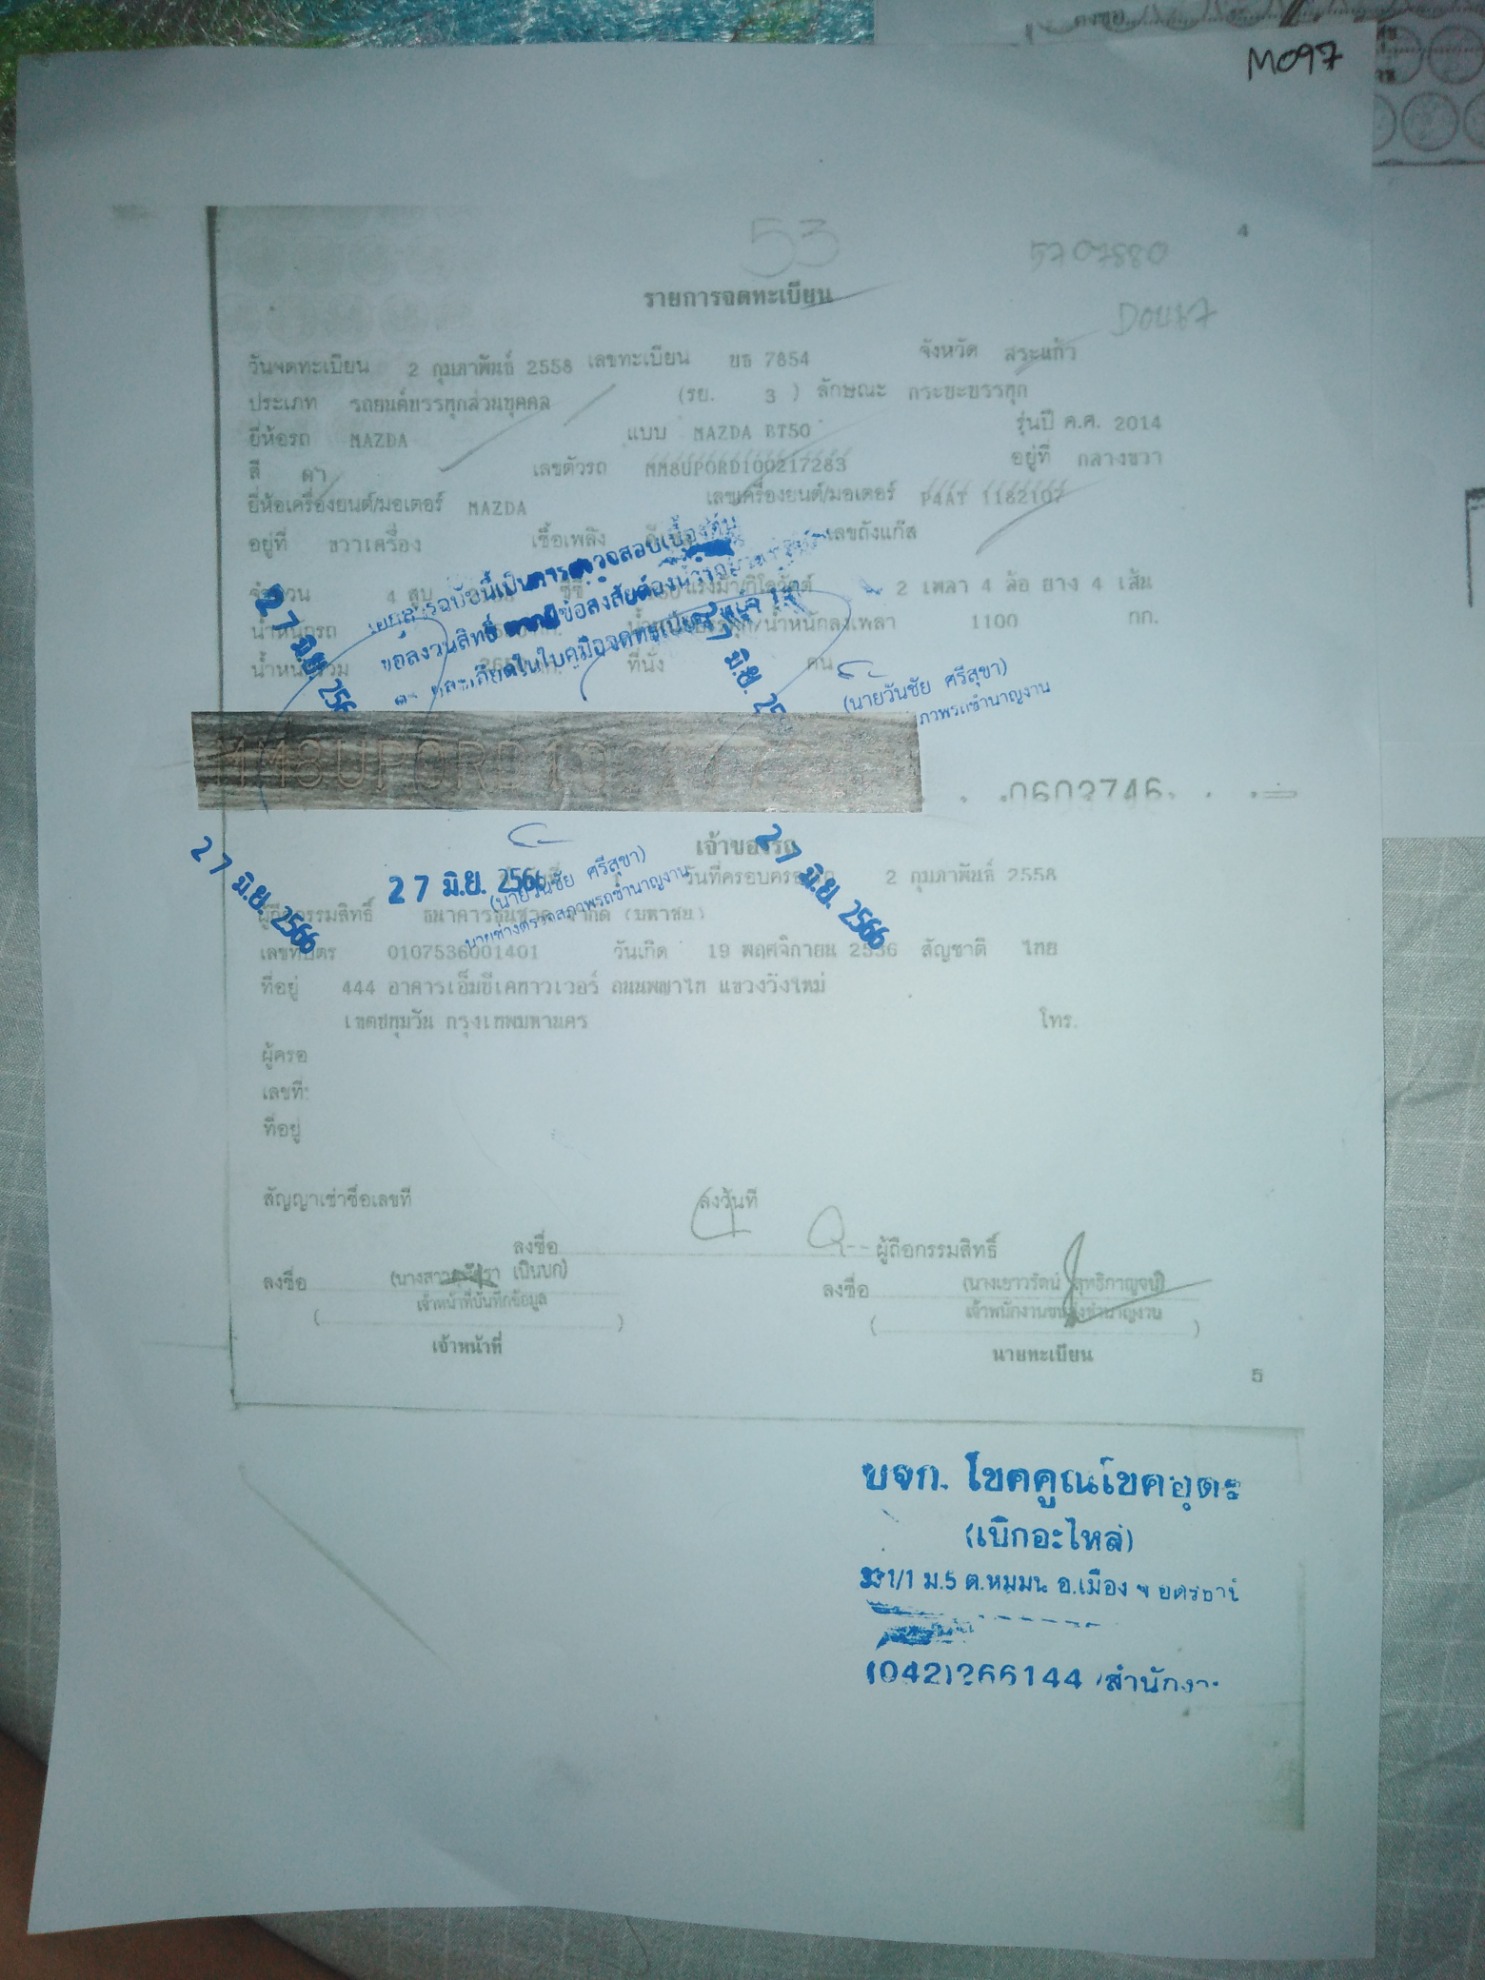 M097
53
4
5707880
รายการจดทะเบียน
วันจดทะเบียน 2 กุมภาพันธ์ 2558 เลขทะเบียน ยธ 7854 จังหวัด สระแก้ว
ประเภท รถยนต์บรรทุกส่วนบุคคล (รย. 3 ) ลักษณะ กระบะบรรทุก
ยี่ห้อรถ MAZDA แบบ MAZDA BT50 รุ่นปี ค.ศ. 2014
สี ดำ เลขตัวรถ MM8UP0RD100217283 อยู่ที่ กลางขวา
ยี่ห้อเครื่องยนต์/มอเตอร์ MAZDA เลขเครื่องยนต์/มอเตอร์ P4AT 1182107
อยู่ที่ ขวาเครื่อง เชื้อเพลิง เลขถังแก๊ส
จำนวน 4 สูบ ซีซี แรงม้า/กิโลวัตต์ 2 เพลา 4 ล้อ ยาง 4 เส้น
น้ำหนักรถ กก. น้ำหนักลงเพลา 1100 กก.
น้ำหนักรวม ที่นั่ง คน
เอกสารฉบับนี้เป็นการตรวจสอบเบื้องต้น
ขอสงวนสิทธิ์ ข้อสงสัยต้อง
ละเอียดในใบคู่มือจดทะเบียน
27 มิ.ย.
27 มิ.ย.
(นายวันชัย ศรีสุขา)
ภาพรถชำนาญงาน
MM8UP0RD100217
0603746
เจ้าของรถ
วันที่ครอบครองรถ 2 กุมภาพันธ์ 2558
27 มิ.ย. 2566
27 มิ.ย. 2566
27 มิ.ย. 2566
(นายวันชัย ศรีสุขา)
นายช่างตรวจสภาพรถชำนาญงาน
ผู้ถือกรรมสิทธิ์ ธนาคารธนชาต จำกัด (มหาชน)
เลขที่บัตร 0107536001401 วันเกิด 19 พฤศจิกายน 2536 สัญชาติ ไทย
ที่อยู่ 444 อาคารเอ็มบีเคทาวเวอร์ ถนนพญาไท แขวงวังใหม่
เขตปทุมวัน กรุงเทพมหานคร โทร.
ผู้ครอ
เลขที่
ที่อยู่
สัญญาเช่าซื้อเลขที่ ลงวันที่
ลงชื่อ ผู้ถือกรรมสิทธิ์
ลงชื่อ (นางสาว เป็นบก) ลงชื่อ (นางเยาวรัตน์ สุทธิกาญจน์)
เจ้าหน้าที่บันทึกข้อมูล เจ้าพนักงานขนส่งชำนาญงาน
( ) ( )
เจ้าหน้าที่ นายทะเบียน
5
บจก. โชคคูณโชคอุดร
(เบิกอะไหล่)
1/1 ม.5 ต.หมูม่น อ.เมือง จ อุดรธานี
(042)266144 สำนักงาน